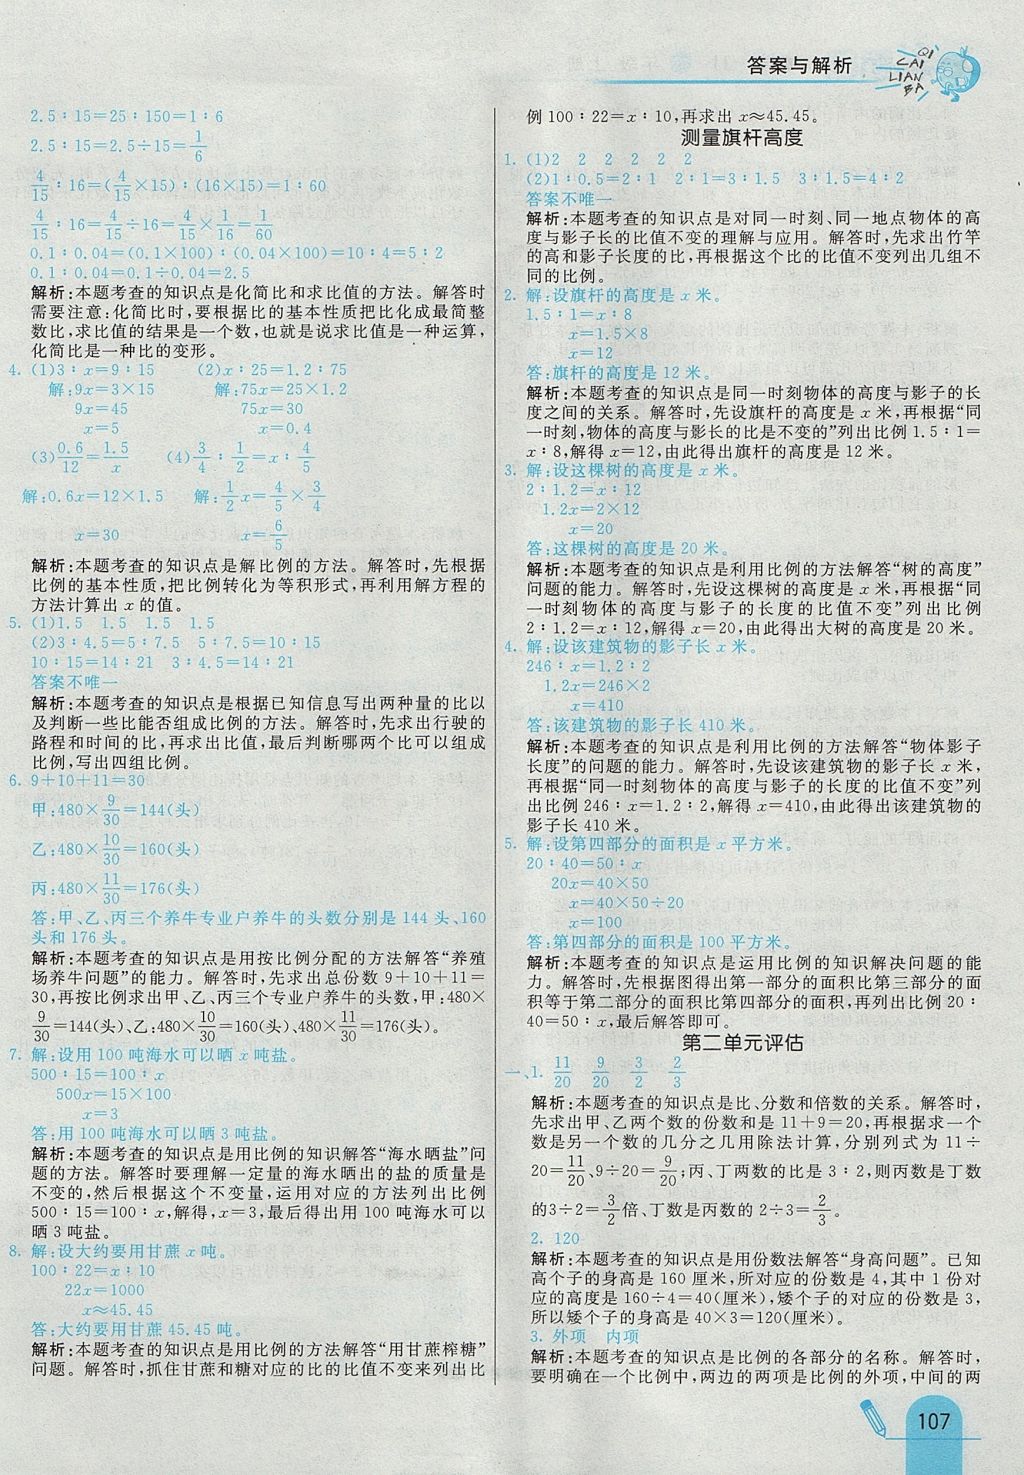 答案与解析
QI
CAI
LIAN
BA
2.5∶15=25∶150=1∶6
2.5∶15=2.5÷15=1/6
4/15∶16=(4/15×15)∶(16×15)=1∶60
4/15∶16=4/15÷16=4/15×1/16=1/60
0.1∶0.04=(0.1×100)∶(0.04×100)=10∶4=5∶2
0.1∶0.04=0.1÷0.04=2.5
解析:本题考查的知识点是化简比和求比值的方法。解答时
需要注意:化简比时,要根据比的基本性质把比化成最简整
数比,求比值的结果是一个数,也就是说求比值是一种运算,
化简比是一种比的变形。
4. (1)3∶x=9∶15 (2)x∶25=1.2∶75
解:9x=3×15 解:75x=25×1.2
9x=45 75x=30
x=5 x=0.4
(3)0.6/12=1.5/x (4)3/4∶1/2=x∶4/5
解:0.6x=12×1.5 解:1/2x=4/5×3/4
x=30 x=6/5
解析:本题考查的知识点是解比例的方法。解答时,先根据
比例的基本性质,把比例转化为等积形式,再利用解方程的
方法计算出 x 的值。
5. (1)1.5 1.5 1.5 1.5
(2)3∶4.5=5∶7.5 5∶7.5=10∶15
10∶15=14∶21 3∶4.5=14∶21
答案不唯一
解析:本题考查的知识点是根据已知信息写出两种量的比以
及判断一些比能否组成比例的方法。解答时,先求出行驶的
路程和时间的比,再求出比值,最后判断哪两个比可以组成
比例,写出四组比例。
6. 9+10+11=30
甲:480×9/30=144(头)
乙:480×10/30=160(头)
丙:480×11/30=176(头)
答:甲、乙、丙三个养牛专业户养牛的头数分别是 144 头、160
头和 176 头。
解析:本题考查的知识点是用按比例分配的方法解答“养殖
场养牛问题”的能力。解答时,先求出总份数 9+10+11=
30,再按比例求出甲、乙、丙三个专业户养牛的头数,甲:480×
9/30=144(头)、乙:480×10/30=160(头)、丙:480×11/30=176(头)。
7. 解:设用 100 吨海水可以晒 x 吨盐。
500∶15=100∶x
500x=15×100
x=3
答:用 100 吨海水可以晒 3 吨盐。
解析:本题考查的知识点是用比例的知识解答“海水晒盐”问
题的方法。解答时要理解一定量的海水晒出的盐的质量是
不变的,然后根据这个不变量,运用对应的方法列出比例
500∶15=100∶x,解得,x=3,最后得出用 100 吨海水可以
晒 3 吨盐。
8. 解:设大约要用甘蔗 x 吨。
100∶22=x∶10
22x=1000
x≈45.45
答:大约要用甘蔗 45.45 吨。
解析:本题考查的知识点是用比例的方法解答“用甘蔗榨糖”
问题。解答时,抓住甘蔗和糖对应的比的比值不变来列出比
例 100∶22=x∶10,再求出 x≈45.45。
测量旗杆高度
1. (1)2 2 2 2 2 2
(2)1∶0.5=2∶1 2∶1=3∶1.5 3∶1.5=4∶2
答案不唯一
解析:本题考查的知识点是对同一时刻、同一地点物体的高
度与影子长的比值不变的理解与应用。解答时,先求出竹竿
的高和影子长度的比,再根据这个比的比值不变列出几组不
同的比例。
2. 解:设旗杆的高度是 x 米。
1.5∶1=x∶8
x=1.5×8
x=12
答:旗杆的高度是 12 米。
解析:本题考查的知识点是同一时刻物体的高度与影子的长
度之间的关系。解答时,先设旗杆的高度是 x 米,再根据“同
一时刻,物体的高度与影长的比是不变的”列出比例 1.5∶1=
x∶8,解得 x=12,由此得出旗杆的高度是 12 米。
3. 解:设这棵树的高度是 x 米。
2∶1.2=x∶12
1.2x=2×12
x=20
答:这棵树的高度是 20 米。
解析:本题考查的知识点是利用比例的方法解答“树的高度”
问题的能力。解答时,先设这棵树的高度是 x 米,再根据“同
一时刻物体的高度与影子的长度的比值不变”列出比例
2∶1.2=x∶12,解得 x=20,由此得出大树的高度是 20 米。
4. 解:设该建筑物的影子长 x 米。
246∶x=1.2∶2
1.2x=246×2
x=410
答:该建筑物的影子长 410 米。
解析:本题考查的知识点是利用比例的方法解答“物体影子
长度”的问题的能力。解答时,先设该建筑物的影子长 x 米,
再根据“同一时刻物体的高度与影子的长度的比值不变”列
出比例 246∶x=1.2∶2,解得 x=410,由此得出该建筑物的
影子长 410 米。
5. 解:设第四部分的面积是 x 平方米。
20∶40=50∶x
20x=40×50
x=40×50÷20
x=100
答:第四部分的面积是 100 平方米。
解析:本题考查的知识点是运用比例的知识解决问题的能
力。解答时,先根据图得出第一部分的面积比第三部分的面
积等于第二部分的面积比第四部分的面积,再列出比例 20∶
40=50∶x,最后解答即可。
第二单元评估
一、1. 11/20 9/20 3/2 2/3
解析:本题考查的知识点是比、分数和倍数的关系。解答时,
先求出甲、乙两个数的份数和是 11+9=20,再根据求一个
数是另一个数的几分之几用除法计算,分别列式为 11÷
20=11/20、9÷20=9/20;丙、丁两数的比是 3∶2,则丙数是丁数
的3÷2=3/2倍、丁数是丙数的 2÷3=2/3。
2. 120
解析:本题考查的知识点是用份数法解答“身高问题”。已知
高个子的身高是 160 厘米,所对应的份数是 4,其中 1 份对
应的高度是 160÷4=40(厘米),矮个子的对应的份数是 3,
所以矮个子的身高是 40×3=120(厘米)。
3. 外项 内项
解析:本题考查的知识点是比例的各部分的名称。解答时,
要明确在一个比例中,两边的两项是比例的外项,中间的两
107